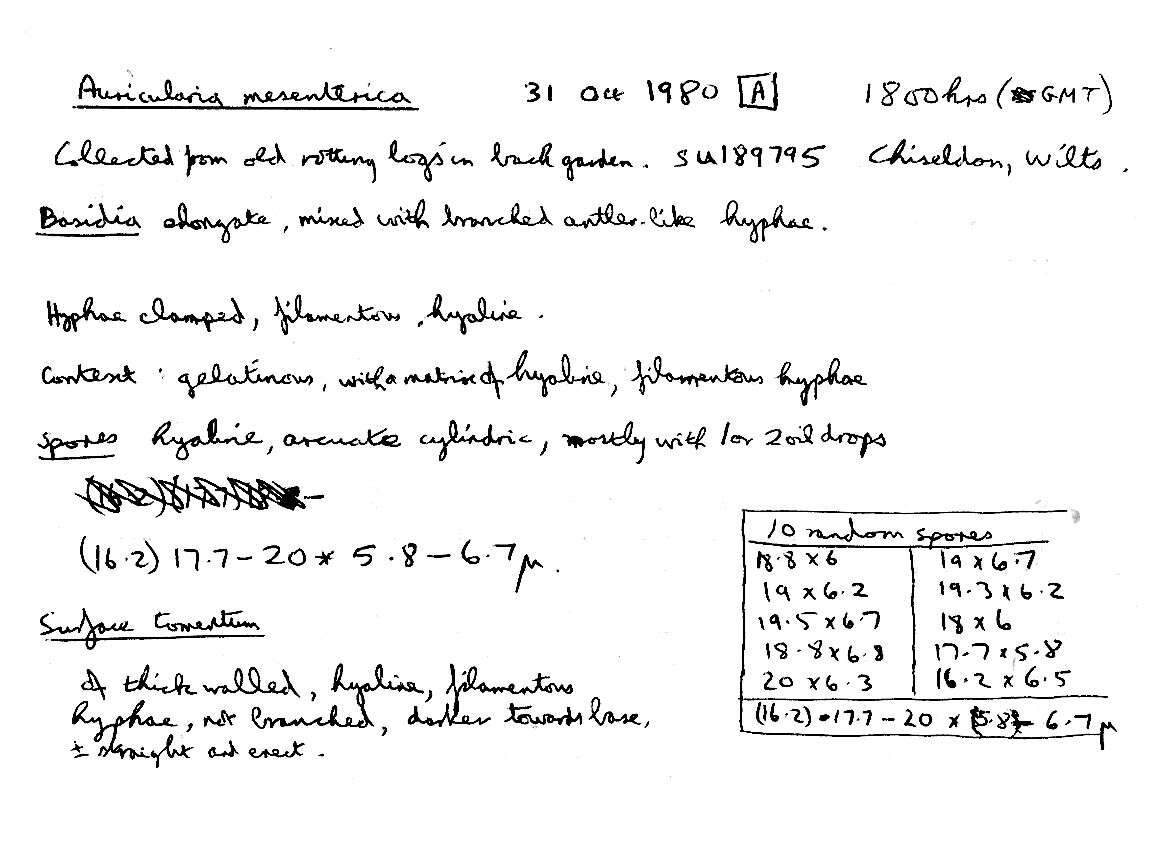 Auricularia mesenterica 31 Oct 1980 A 1800hrs (GMT)
Collected from old rotting logs in back garden. SU189795 Chiseldon, Wilts.
Basidia elongate, mixed with branched antler-like hyphae.
Hyphae clamped, filamentous, hyaline.
Context: gelatinous, with a matrix of hyaline, filamentous hyphae
Spores hyaline, arcuate cylindric, mostly with 1 or 2 oil drops
(16.2) 17.7 - 20 * 5.8 - 6.7 μ.
Surface Tomentum
Of thick walled, hyaline, filamentous
hyphae, not branched, darker towards base,
± straight and erect.
10 random spores
18.8 x 6 19 x 6.7
19 x 6.2 19.3 x 6.2
19.5 x 6.7 18 x 6
18.8 x 6.8 17.7 x 5.8
20 x 6.3 16.2 x 6.5
(16.2) - 17.7 - 20 x (5.8) - 6.7 μ